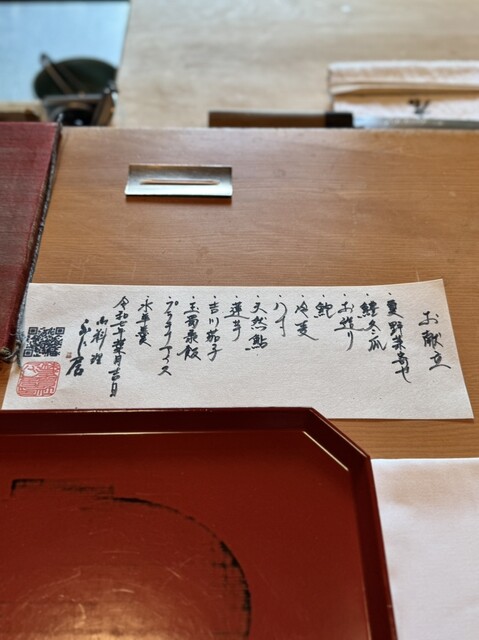 お献立
・夏野菜寄せ
・鱧冬瓜
・お造り
・鮑
・冷麦
・八寸
・天然鮎
・蓮芋
・吉川茄子
・玉蜀黍飯
・水羊羹
令和七年葉月吉日
御料理
ふじ居